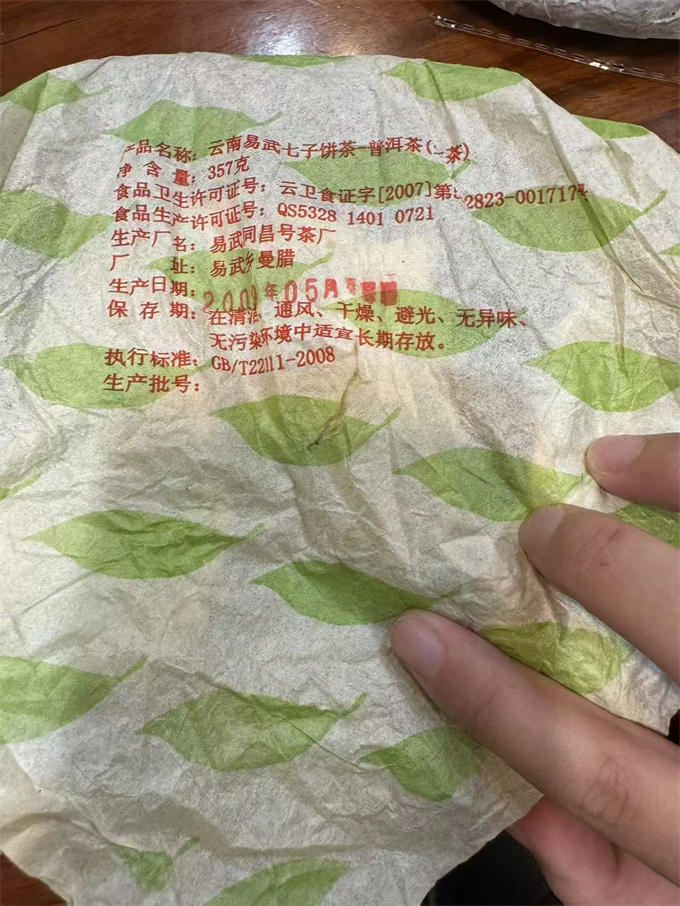 产品名称：云南易武七子饼茶-普洱茶(茶)
净 含 量：357克
食品卫生许可证号：云卫食证字[2007]第2823-001717号
食品生产许可证号：QS5328 1401 0721
生产厂名：易武同昌号茶厂
厂 址：易武乡曼腊
生产日期：2009年05月
保 存 期：在清洁、通风、干燥、避光、无异味、
无污染环境中适宜长期存放。
执行标准：GB/T22111-2008
生产批号：